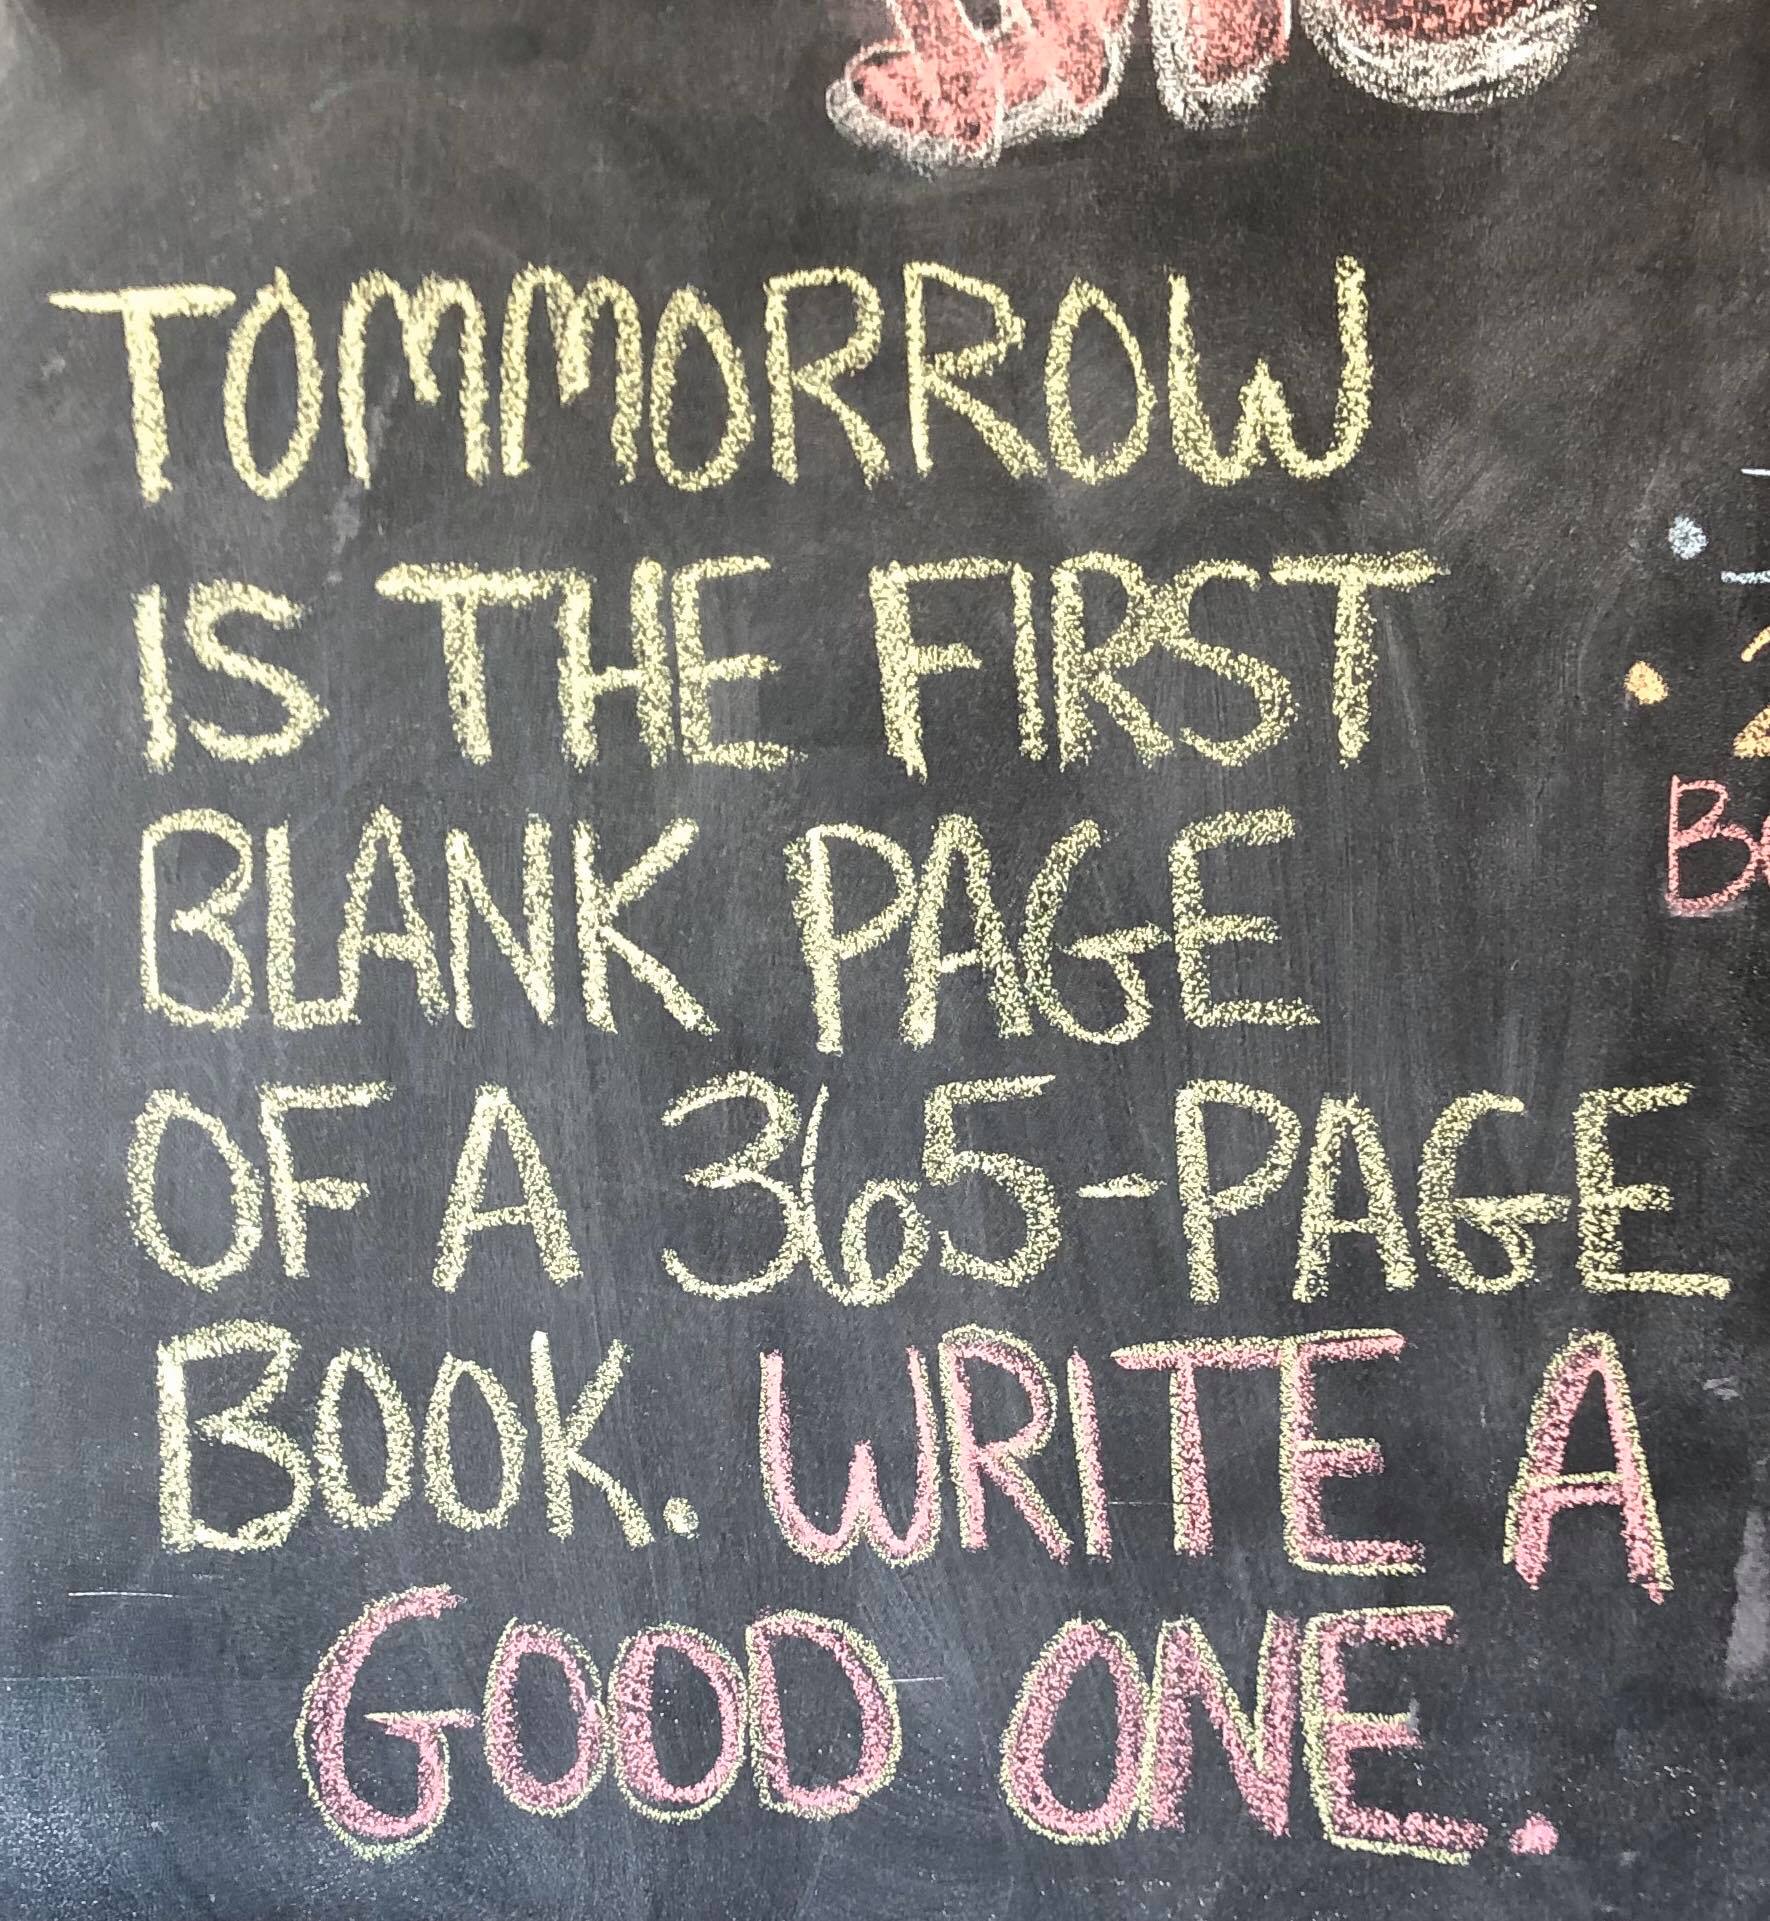 TOMMORROW
IS THE FIRST
BLANK PAGE
OF A 365-PAGE
BOOK. WRITE A
GOOD ONE.